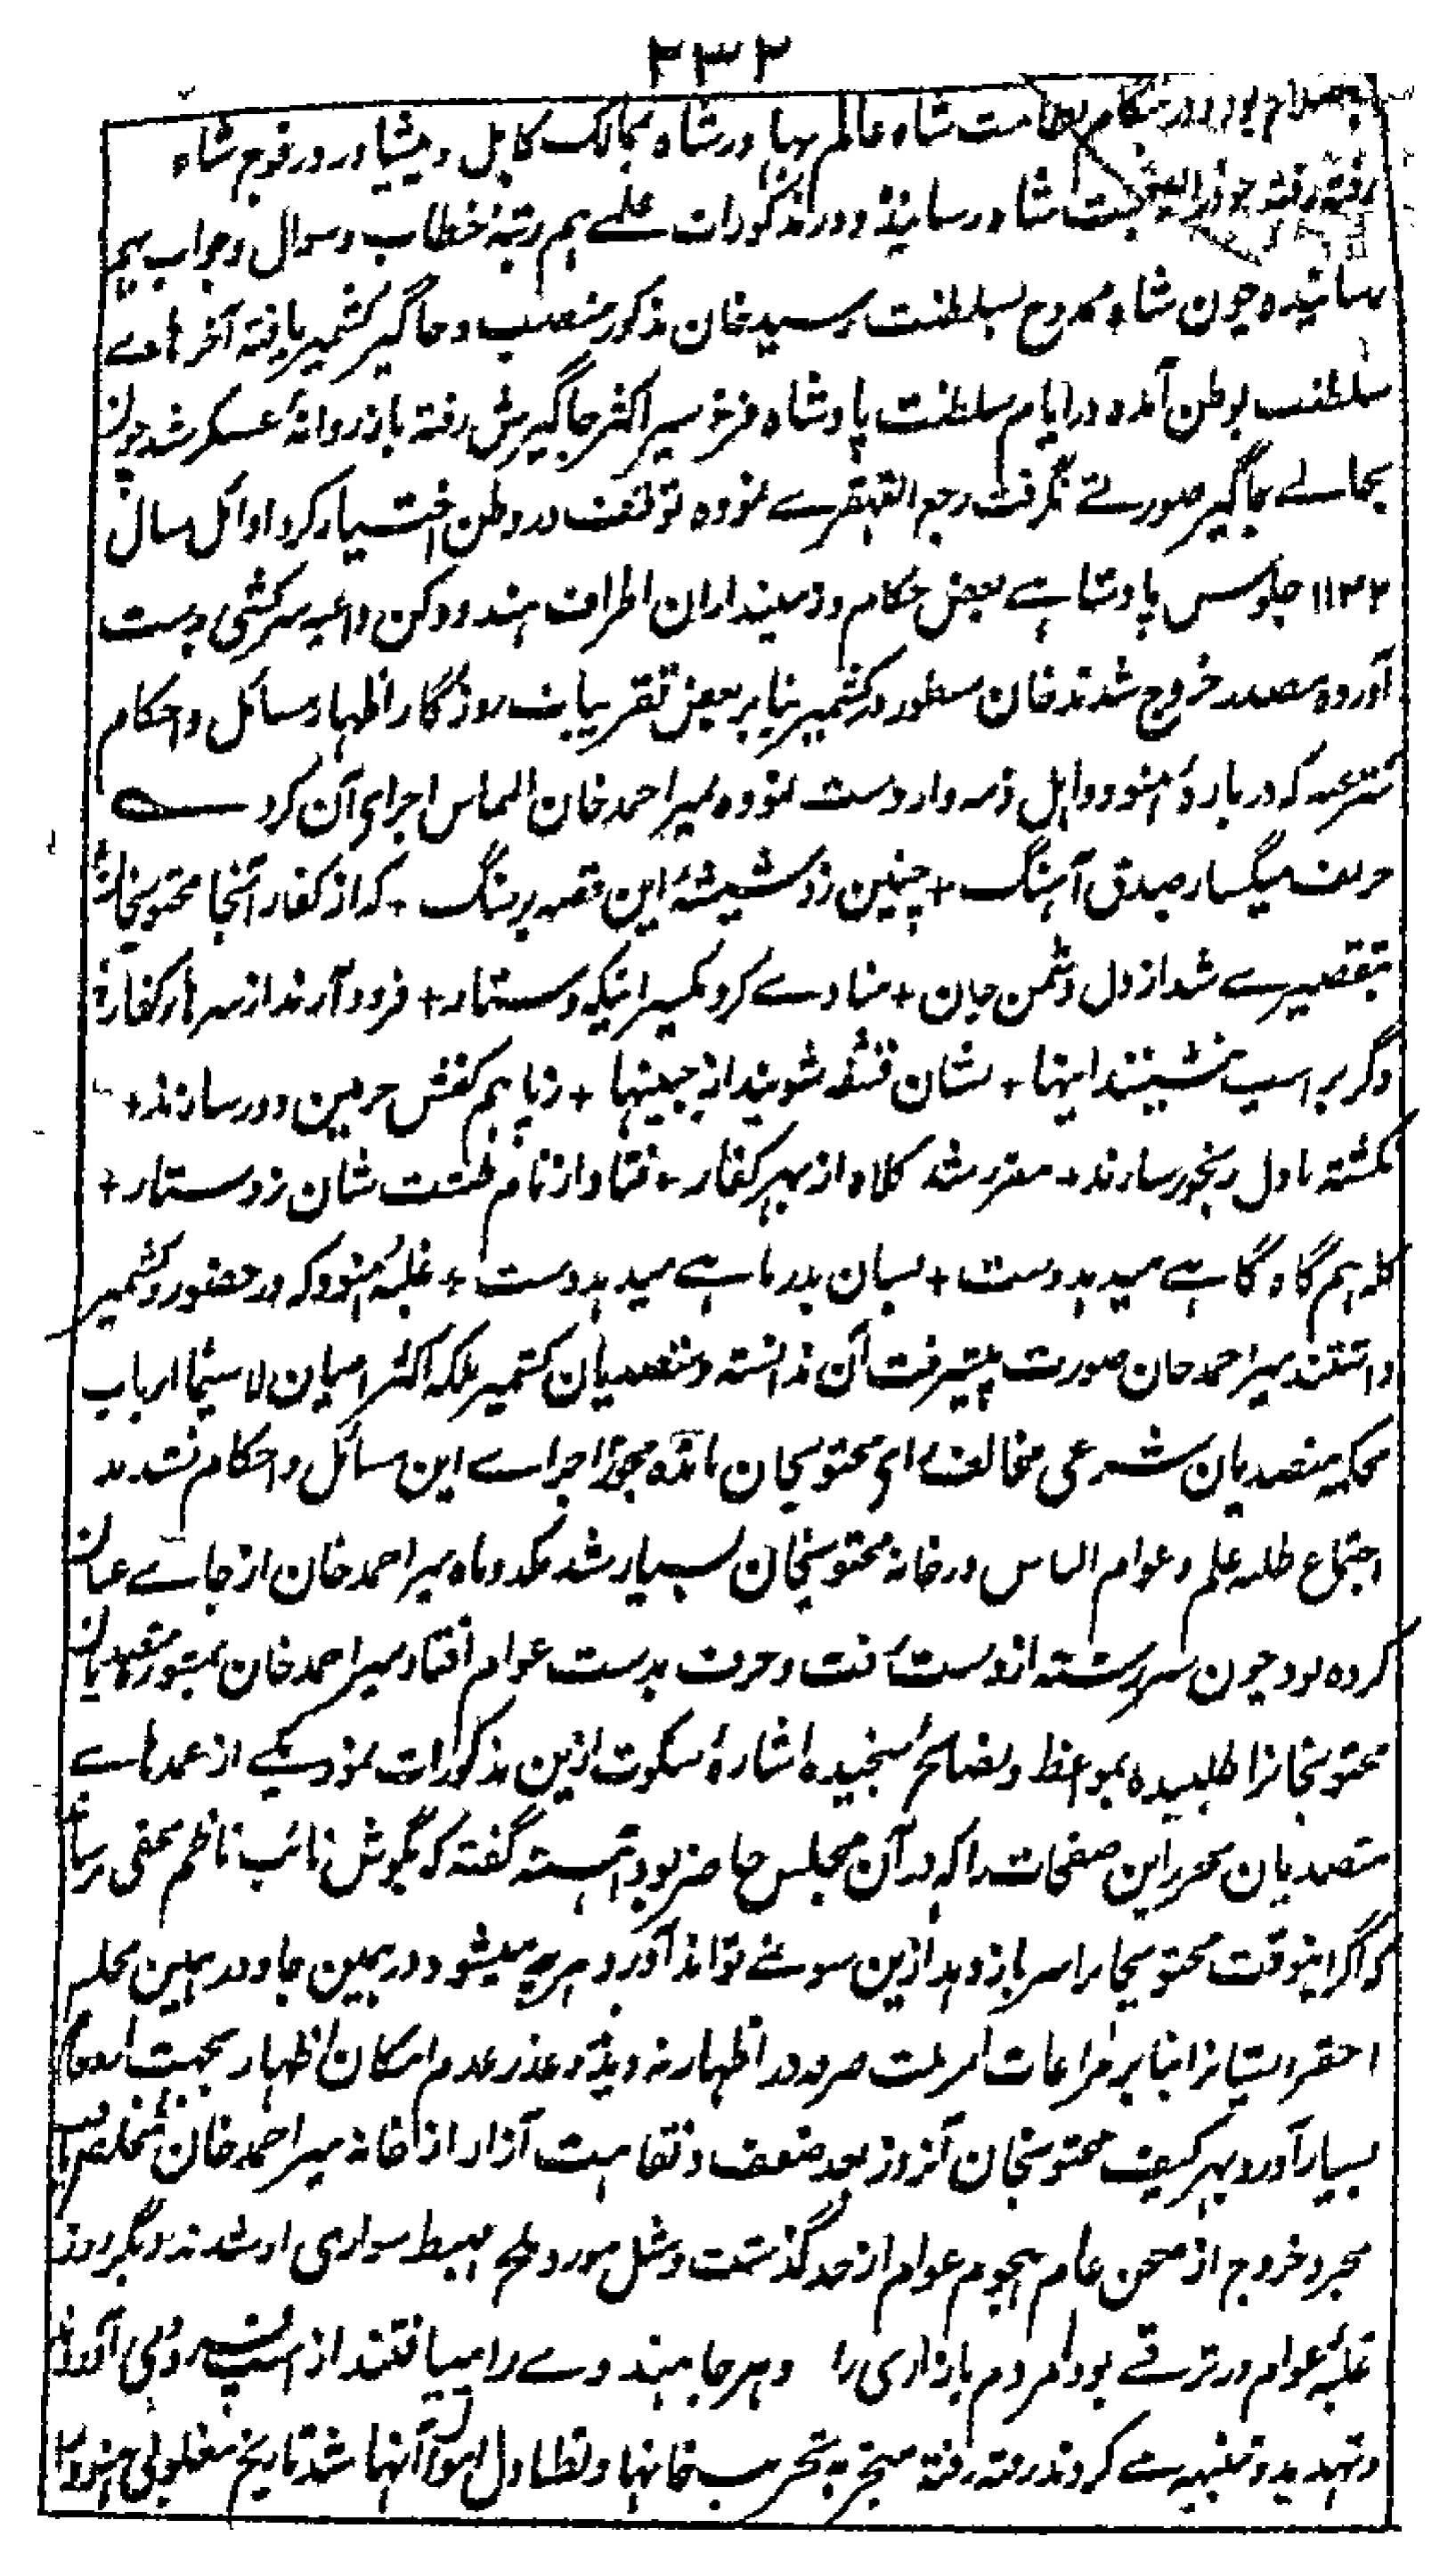 ۲۳۲
نظامت شاه عالم بهادر شاه بممالک کابل و پیشاور در فوج شاه
رفته رفته خود را بصحبت شاه رسانیده و در مذکورات علمے هم رتبهٔ خطاب و سوال و جواب بهم
رسانیده چون شاه ممدوح بسلطنت رسید خان مذکور منصب و جاگیر کشمیر یافته آخر هاے
سلطنت بوطن آمده در ایام سلطنت پادشاه فرخ سیر اکثر جاگیرش رفته باز روانهٔ عسکر شد چون
بحالے جاگیر صورتے نگرفت رجع القهقرے نموده توقف در وطن اختیار کرد اوائل سال
۱۱۳۲ جلوس پادشاهے بعض حکام و زمینداران اطراف هند و دکن داعیه سرکشی بدست
آورده مصدر خروج شدند خان مسطور در کشمیر بنا بر بعض تقریبات روزگار اظهار مسائل و احکام
شرعیه که در بارهٔ هنود و اهل ذمه وارد ست نموده بمیر احمد خان التماس اجرای آن کرد
حریف میگسار صدق آهنگ + چنین زد شیشهٔ این قصه بر سنگ + که از کفار آنجا محتویخان
بتقصیرے شد از دل دشمن جان + منادے کرد یکسر اینکه دستار + فرود آرند از سرهار کفار
دگر بر اسپ ننشینند اینها + نشان قشقه شویند از جبینها + ز پا هم کفش چرمین دور سازند +
نگشته با دل رنجور سازند + مقرر شد کلاه از بهر کفار + فتاد از نام طشت شان ز دستار +
کله هم گاه گاهے میدهد دست + بسان بدر ماهے میدهد دست + غلبهٔ هنود که در حضور و کشمیر
داشتند میر احمد خان صورت پیشرفت آن ندانسته و متصدیان کشمیر بلکه اکثر اعیان لا سیما ارباب
محکمه متصدیان شرعی مخالف رای محتویخان مانده مجوز اجراے این مسائل و احکام نشدند
اجتماع طلبه علم و عوام الناس در خانه محتویخان بسیار شد یکدو ماه میر احمد خان از جاے عنان
کرده بود چون سررشته از دست رفت و حرف بدست عوام افتاد میر احمد خان بمشوره متصدیان
محتویخانرا طلبیده بمواعظ و نصائح سنجیده اشارهٔ سکوت ازین مذکورات نمود یکے از عمدهاے
متصدیان محرر این صفحات را که در آن مجلس حاضر بود آهسته گفته که بگوش نائب ناظم مخفی رساند
که اگر اینوقت محتویخانرا سر باز دهد ازین سو نمے تواند آورد و هر چه میشود در همین جا و در همین محل
احقر ایشانرا بنا بر مراعات امر ملت صرفه در اظهار نه دیده و عذر عدم امکان اظهار بجهت
بسیار آورد بهر کیف محتویخان آنروز بعد ضعف و نقاهت آزار از خانه میر احمد خان
مجرد خروج از صحن عام هجوم عوام از حد گذشت و مثل مور و ملخ محیط سواری او شدند دیگر روز
غلبهٔ عوام در ترقے بود مردم بازاری را و هر جا هندوے را مییافتند از اسپ
و تهدید و تنبیهے کردند رفته رفته منجر به تخریب خانها و تطاول اموال آنها شد تاریخ مغلوبی هنود